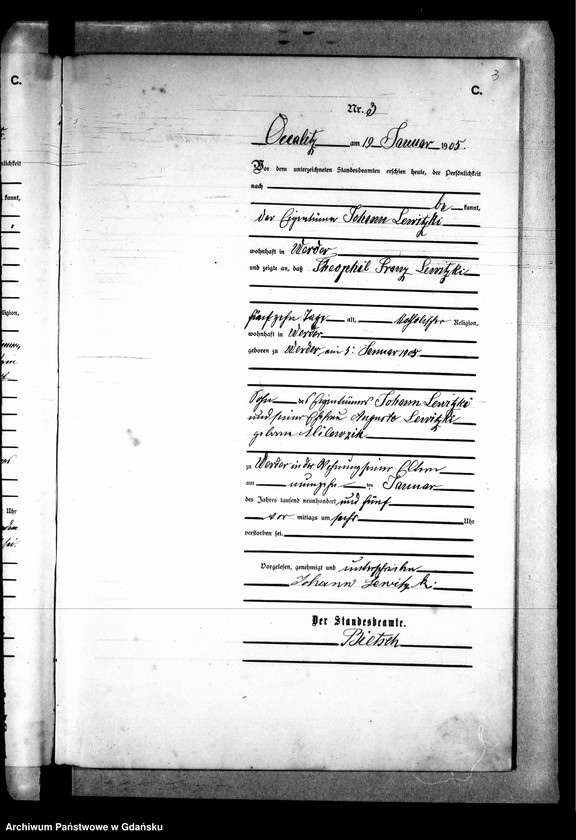 3
C.
C.
Nr. 3
Occalitz am 19 Januar 1905.
Vor dem unterzeichneten Standesbeamten erschien heute, der Persönlichkeit
nach
be kannt,
der Eigentümer Johann Lewitzki
wohnhaft in Werder
und zeigte an, daß Theophil Franz Lewitzki
fünfzehn Tage alt, katholischer Religion,
wohnhaft in Werder
geboren zu Werder, am 5. Januar 1905
Sohn des Eigentümers Johann Lewitzki
und seiner Ehefrau Auguste Lewitzki
geborene
zu Werder in der Wohnung seiner Eltern
am neunzehn ten Januar
des Jahres tausend neunhundert und fünf
vor mittags um sechs Uhr
verstorben sei.
Vorgelesen, genehmigt und unterschrieben
Johann Lewitzki
Der Standesbeamte.
Bietsch
Archiwum Państwowe w Gdańsku